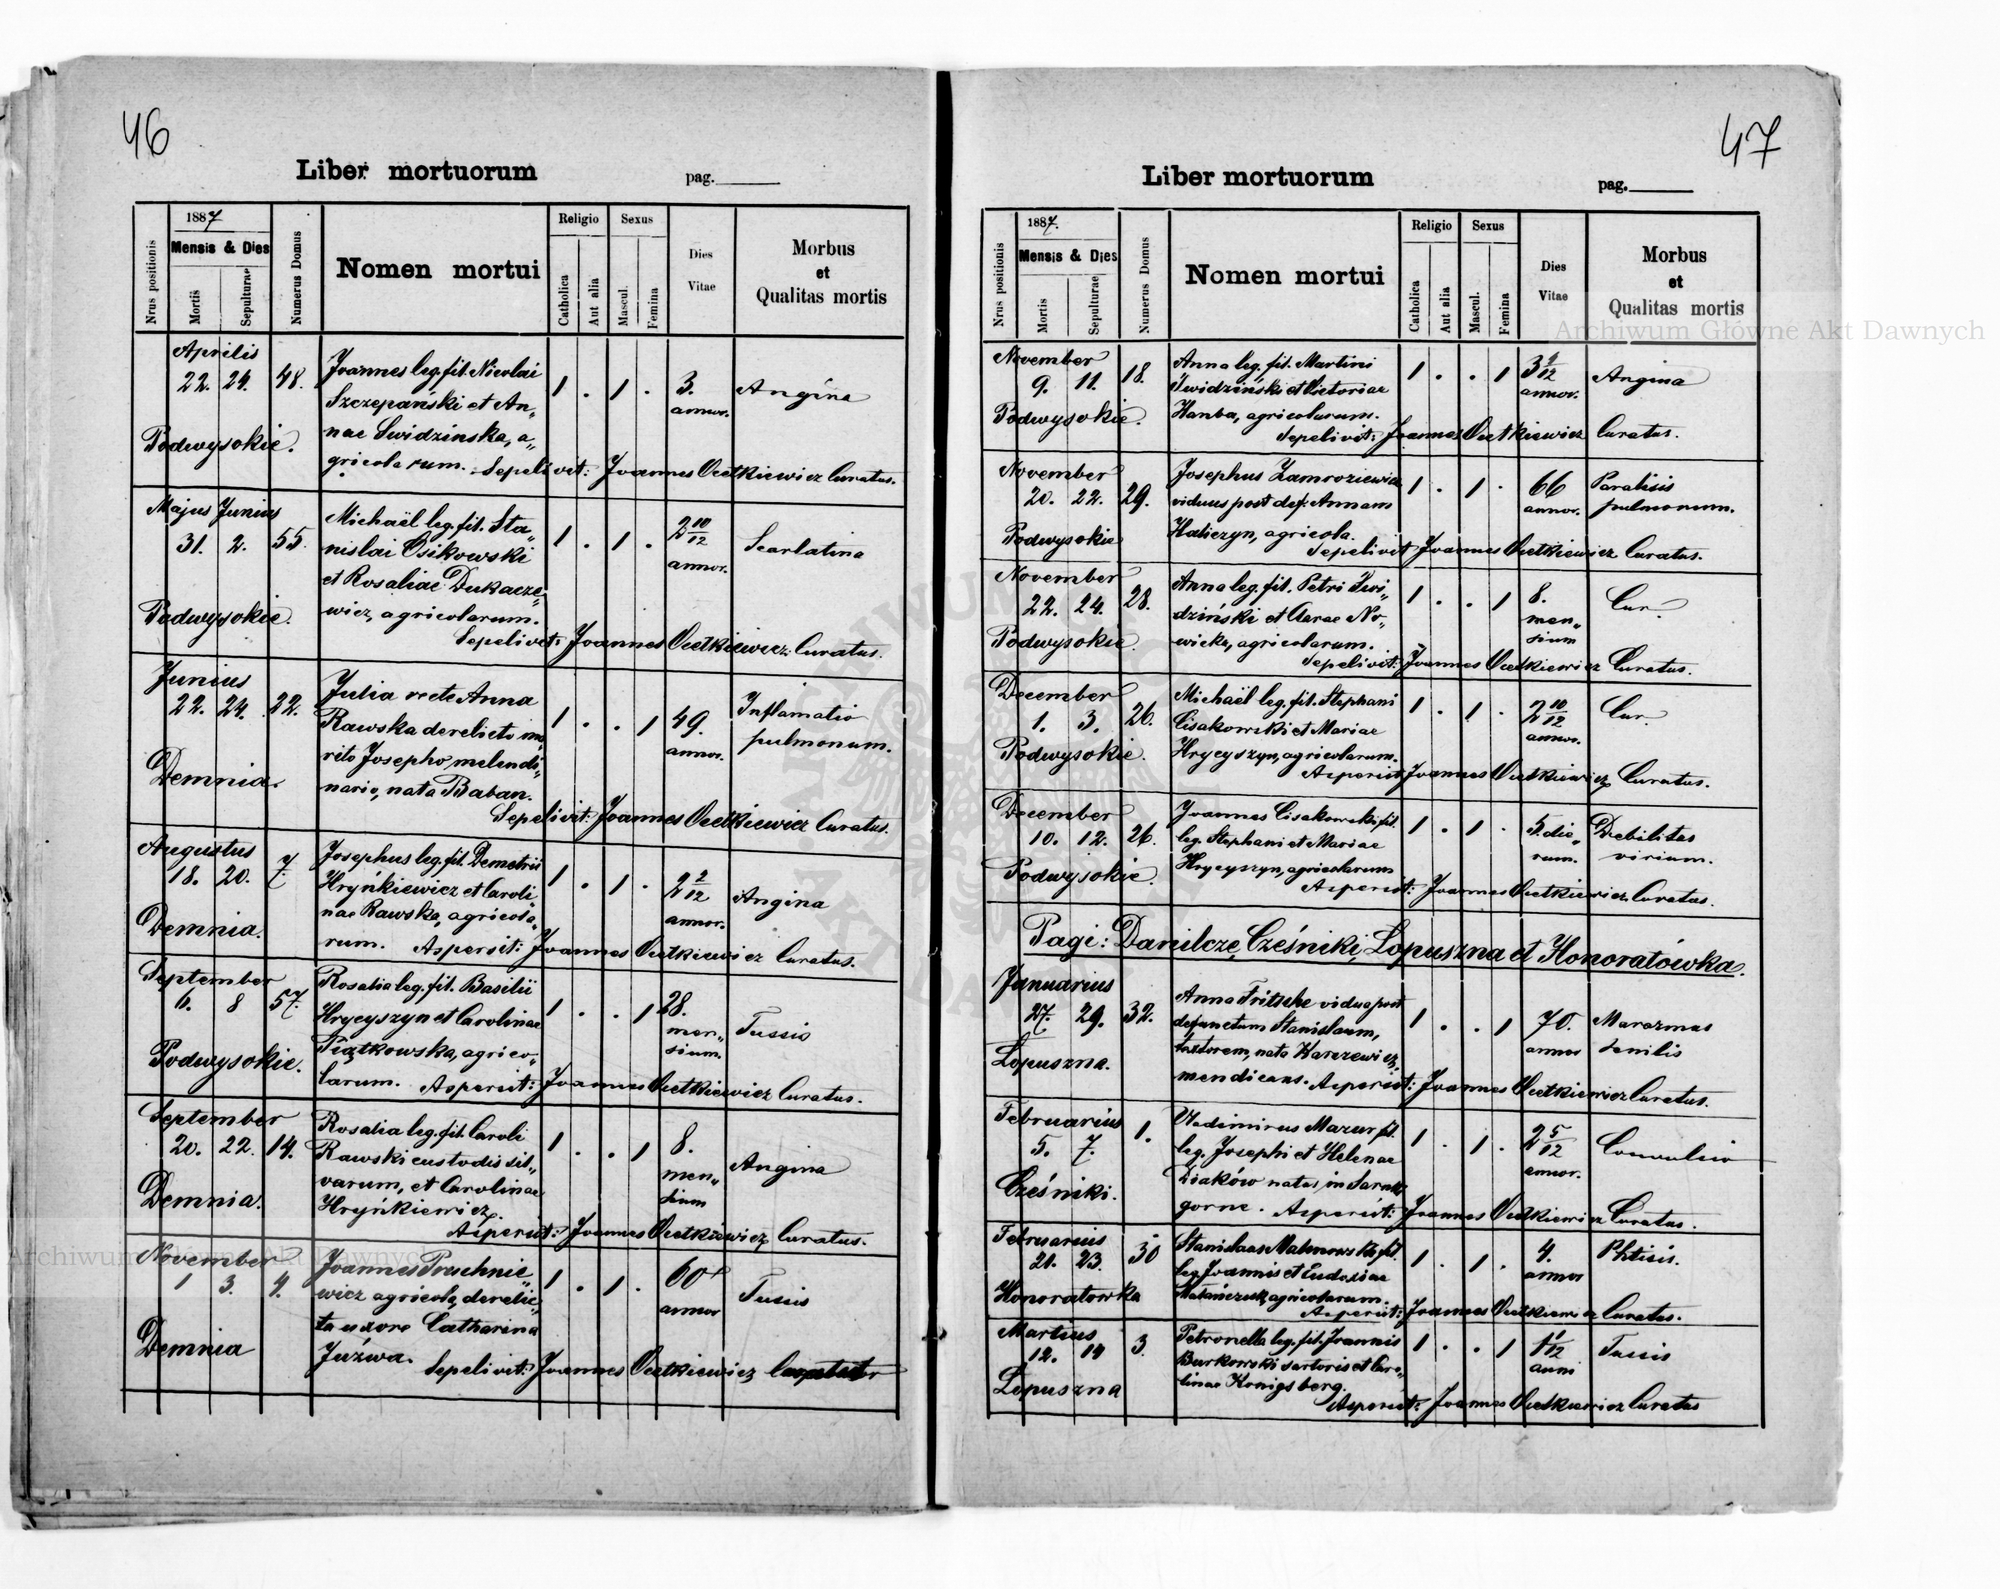 46
Liber mortuorum pag.
Nrus positionis
1887
Mensis & Dies
Mortis
Sepulturae
Numerus Domus
Nomen mortui
Religio
Catholica
Aut alia
Sexus
Mascul.
Femina
Dies
Vitae
Morbus
et
Qualitas mortis
Aprilis
22. 24. 48.
Podwysokie.
Joannes leg. fil. Nicolai
Szczepański et An„
nae Swidzinska, a„
gricolarum. Sepelivit: Joannes Ocetkiewicz Curatus.
1 . 1 .
3.
annor.
Angina
Majus Junius
31. 2. 55.
Podwysokie.
Michaël leg. fil. Sta„
nislai Osikowski
et Rosaliae Dukacze„
wicz, agricolarum.
Sepelivit: Joannes Ocetkiewicz Curatus.
1 . 1 .
2 10/12
annor.
Scarlatina
Junius
22. 24. 22.
Demnia.
Julia recte Anna
Rawska derelicto ma„
rito Josepho molendi„
nario, nata Baban.
Sepelivit: Joannes Ocetkiewicz Curatus.
1 . . 1
49.
annor.
Inflamatio
pulmonum.
Augustus
18. 20. 7.
Demnia.
Josephus leg. fil. Demetrii
Hryńkiewicz et Caroli„
nae Rawska, agricola„
rum. Aspersit: Joannes Ocetkiewicz Curatus.
1 . 1 .
2 2/12
annor.
Angina
September
6. 8 57.
Podwysokie.
Rosalia leg. fil. Basilii
Hrycyszyn et Carolinae
Piątkowska, agrico„
larum. Aspersit: Joannes Ocetkiewicz Curatus.
1 . . 1
28.
men„
sium.
Tussis
September
20. 22. 14.
Demnia.
Rosalia leg. fil. Caroli
Rawski custodis sil„
varum, et Carolinae
Hryńkiewicz.
Aspersit: Joannes Ocetkiewicz Curatus.
1 . . 1
8.
men„
sium
Angina
November
1 3. 4.
Demnia
Joannes Pruchnie„
wicz agricola, derelic„
ta uxore Catharina
Júzwa.
Sepelivit: Joannes Ocetkiewicz
1 . 1 .
60
annor
Tussis
47
Liber mortuorum pag.
Nrus positionis
1887.
Mensis & Dies
Mortis
Sepulturae
Numerus Domus
Nomen mortui
Religio
Catholica
Aut alia
Sexus
Mascul.
Femina
Dies
Vitae
Morbus
et
Qualitas mortis
November
9. 11. 18.
Podwysokie.
Anna leg. fil. Martini
Swidziński et Victoriae
Hanba, agricolarum.
Sepelivit: Joannes Ocetkiewicz Curatus.
1 . . 1
annor.
Angina
November
20. 22. 29.
Podwysokie
Josephus Zamroziewicz
viduus post def. Annam
Haliczyn, agricola.
Sepelivit Joannes Ocetkiewicz Curatus.
1 . 1 .
66
annor.
Paralisis
pulmonum.
November
22. 24. 28.
Podwysokie.
Anna leg. fil. Petri Swi„
dziński et Clarae No„
wicka, agricolarum.
Sepelivit: Joannes Ocetkiewicz Curatus.
1 . . 1
8.
men„
sium
December
1. 3. 26.
Podwysokie.
Michaël leg. fil. Stephani
Cisakowski et Mariae
Hrycyszyn, agricolarum.
Aspersit Joannes Ocetkiewicz Curatus.
1 . 1 .
2 10/12
annor.
December
10. 12. 26.
Podwysokie.
Joannes Cisakowski fil.
leg. Stephani et Mariae
Hrycyszyn, agricolarum
Aspersit: Joannes Ocetkiewicz Curatus.
1 . 1 .
5. die„
rum.
Debilitas
virium.
Pagi: Danilcze, Cześniki, Lopuszna et Honoratówka.
Januarius
27. 29. 32.
Lopuszna.
Anna Fritsche vidua post
defunctum Stanislaum,
textorem, nata Karczewicz,
mendicans. Aspersit: Joannes Ocetkiewicz Curatus.
1 . . 1
70.
annor
Marazmus
senilis
Februarius
5. 7. 1.
Cześniki.
Vladimirus Mazur fil.
leg. Josephi et Helenae
Diaków natus in Sarnki
gorne. Aspersit: Joannes Ocetkiewicz Curatus.
1 . 1 .
2 5/12
annor.
Convulsio
Februarius
21. 23. 30
Honoratowka
leg. Joannis et Eudoxiae
agricolarum.
Aspersit: Joannes Ocetkiewicz Curatus.
1 . 1 .
4.
annor
Phtisis.
Martius
12. 14 3.
Lopuszna
Petronella leg. fil. Joannis
Burkowski sartoris et Caro„
linae Konigsberg.
Aspersit: Joannes Ocetkiewicz Curatus
1 . . 1
1 1/12
anni
Tussis
Archiwum Główne Akt Dawnych
Archiwum Główne Akt Dawnych